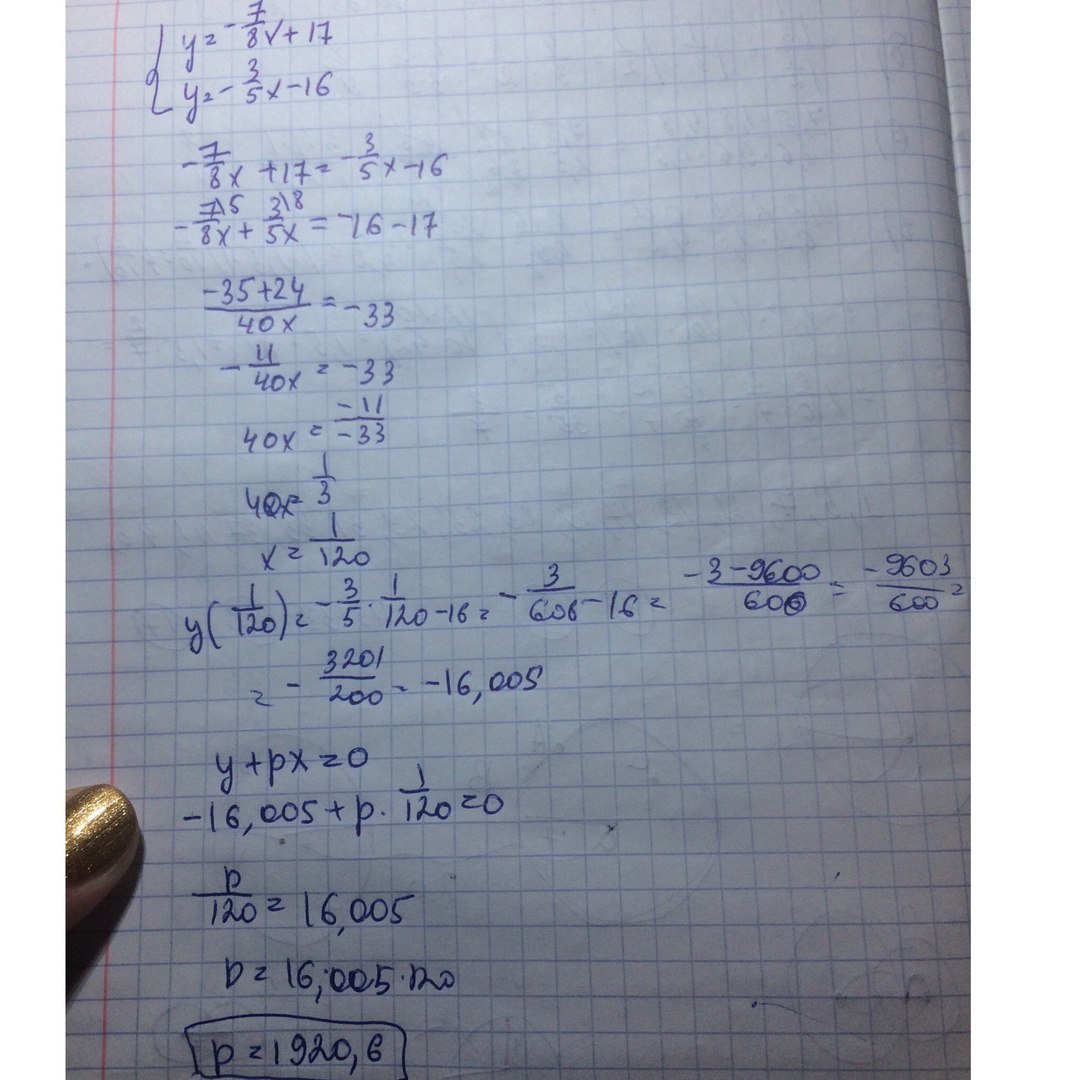 { y = -7/8 x + 17
y = -3/5 x - 16
-7/8x + 17 = -3/5x - 16
-7\5/8x + 3\8/5x = -16 - 17
-35+24/40x = -33
-11/40x = -33
40x = -11/-33
40x = 1/3
x = 1/120
y(1/120) = -3/5 · 1/120 - 16 = -3/600 - 16 = -3-9600/600 = -9603/600 =
= -3201/200 = -16,005
y + px = 0
-16,005 + p · 1/120 = 0
p/120 = 16,005
p = 16,005 · 120
p = 1920,6